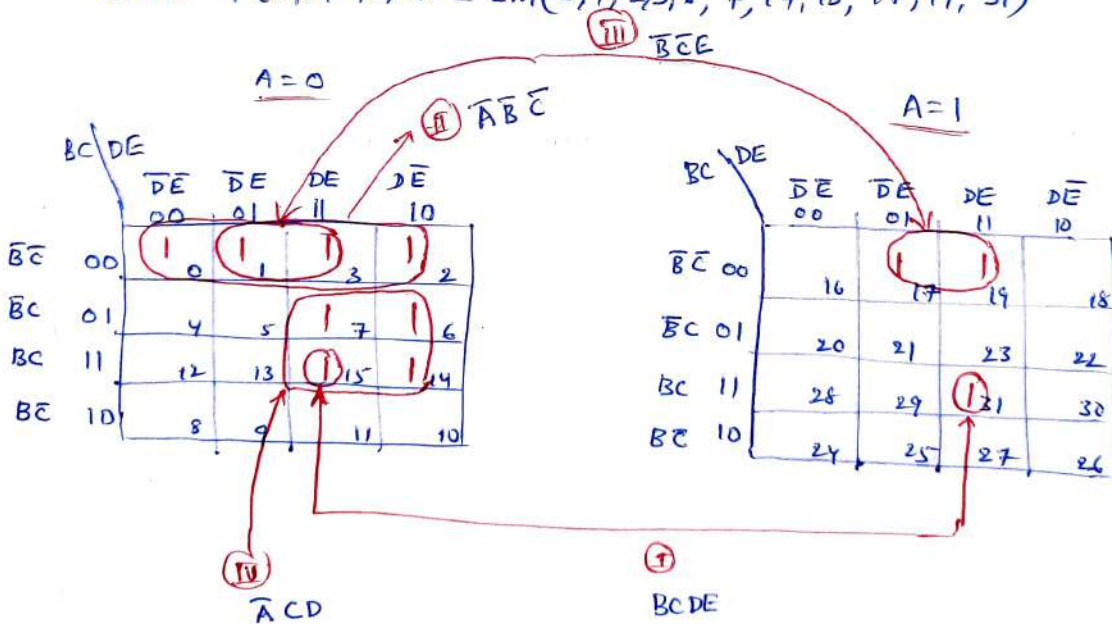 (0, 1, 2, 3, 6, 7, 14, 15, 17, 19, 31)
III B̅C̅E
A = 0
II A̅B̅C̅
A = 1
BC\DE
D̅E̅ D̅E DE DE̅
00 01 11 10
B̅C̅ 00 1 0 1 1 1 3 1 2
B̅C 01 4 5 1 7 1 6
BC 11 12 13 1 15 1 14
BC̅ 10 8 9 11 10
BC\DE
D̅E̅ D̅E DE DE̅
00 01 11 10
B̅C̅ 00 16 1 17 1 19 18
B̅C 01 20 21 23 22
BC 11 28 29 1 31 30
BC̅ 10 24 25 27 26
IV
A̅CD
I
BCDE